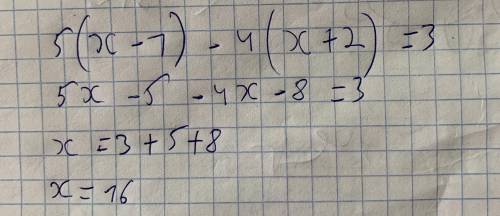 5(x - 1) - 4(x + 2) = 3
5x - 5 - 4x - 8 = 3
x = 3 + 5 + 8
x = 16